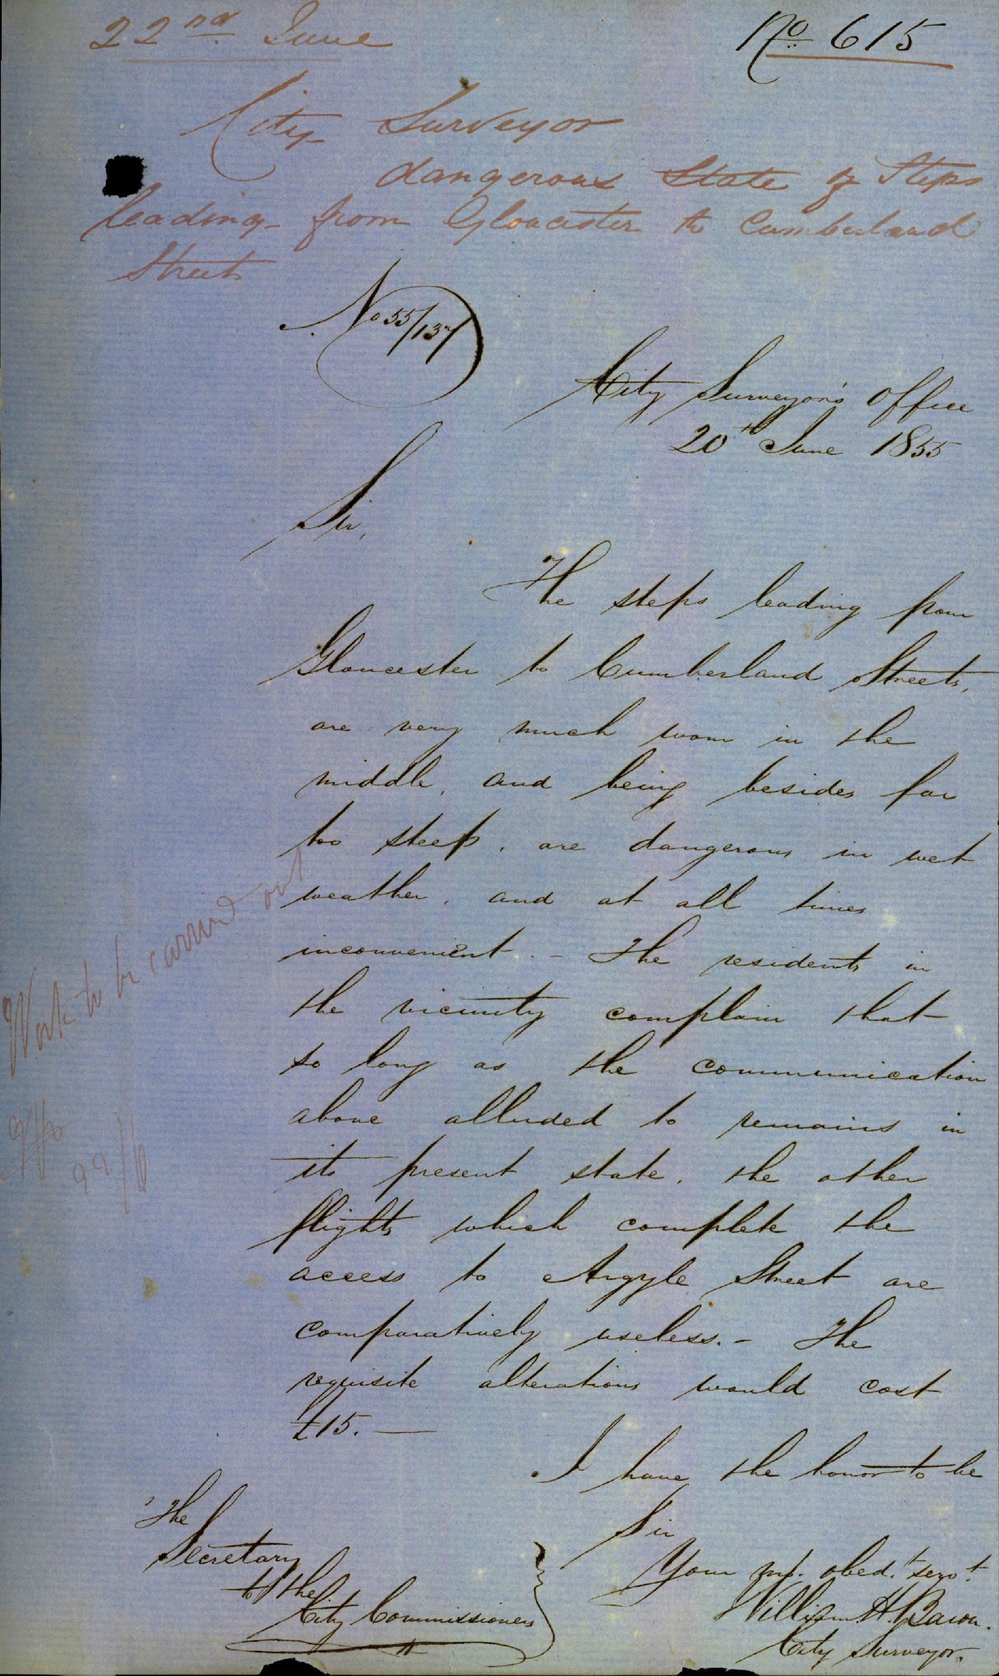 22nd June
No 615
City Surveyor
dangerous State of Steps
leading from Gloucester to Cumberland
Streets
No 55/137
City Surveyor's Office
20th June 1855
Sir,
The steps leading from
Gloucester to Cumberland Streets,
are very much worn in the
middle, and being besides far
too steep, are dangerous in wet
weather, and at all times
inconvenient. - The residents in
the vicinity complain that
so long as the communication
above alluded to remains in
its present state, the other
flights which complete the
access to Argyle Street are
comparatively useless. - The
requisite alterations would cost
£15. —
I have the honor to be
Sir
Your mt. obed.t servt.
William H. 
City Surveyor.
The
Secretary
to the
City Commissioners
Work to be carried out
22/6